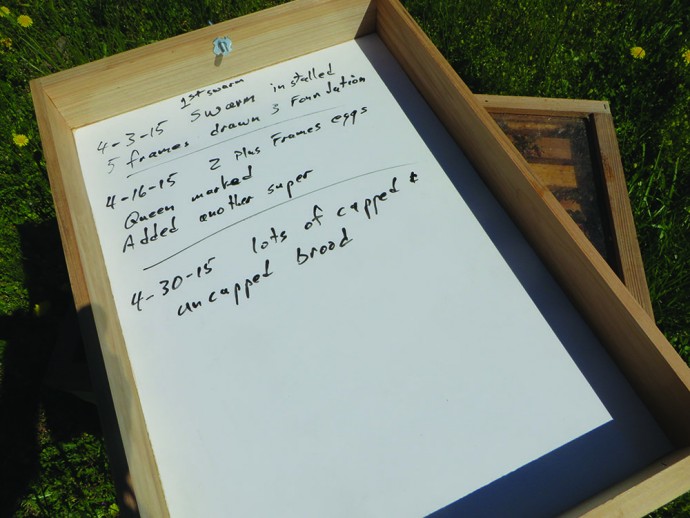 1st swarm
4-3-15 Swarm installed
5 frames drawn 3 Foundation
4-16-15 2 Plus Frames eggs
Queen marked
Added another super
4-30-15 lots of capped &
uncapped brood